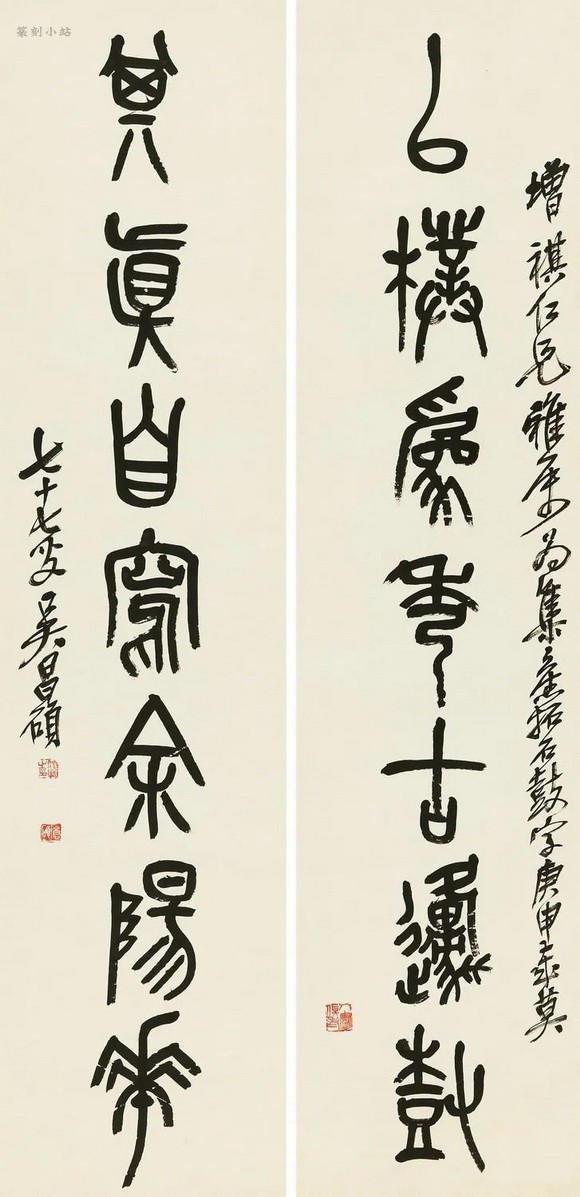 增祺仁兄雅屬為集拓石鼓字庚申歲莫
以樸為秀古邍尌
其真自寫余陽華
七十七叟吳昌碩
篆刻小站